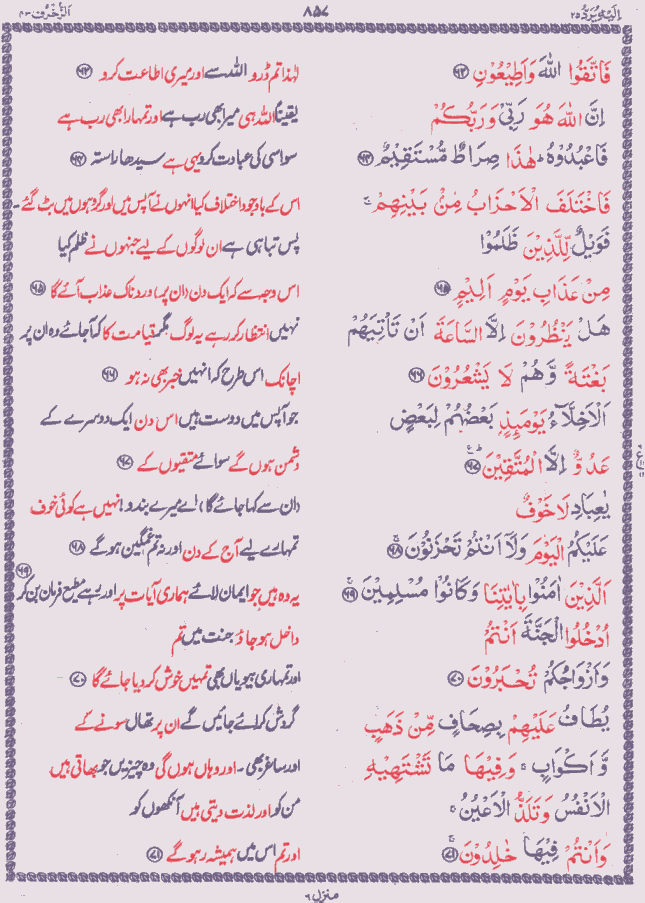 اِلَيْهِ يُرَدُّ ۲۵
۸۵۷
اَلزُّخْرُف ۴۳
فَاتَّقُوا اللّٰهَ وَاَطِيْعُوْنِ ۶۳
لہٰذا تم ڈرو اللہ سے اور میری اطاعت کرو ۶۳
اِنَّ اللّٰهَ هُوَ رَبِّيْ وَرَبُّكُمْ
یقیناً اللہ ہی میرا بھی رب ہے اور تمہارا بھی رب ہے
فَاعْبُدُوْهُ ؕ هٰذَا صِرَاطٌ مُّسْتَقِيْمٌ ۶۴
سو اسی کی عبادت کرو یہی ہے سیدھا راستہ ۶۴
فَاخْتَلَفَ الْاَحْزَابُ مِنْۢ بَيْنِهِمْ ۚ
اس کے باوجود اختلاف کیا انہوں نے آپس میں اور گروہوں میں بٹ گئے ۔
فَوَيْلٌ لِّلَّذِيْنَ ظَلَمُوْا
پس تباہی ہے ان لوگوں کے لیے جنہوں نے ظلم کیا
مِنْ عَذَابِ يَوْمٍ اَلِيْمٍ ۶۵
اس وجہ سے کہ ایک دن (ان پر) اور دناک عذاب آئے گا ۶۵
هَلْ يَنْظُرُوْنَ اِلَّا السَّاعَةَ اَنْ تَاْتِيَهُمْ
نہیں انتظار کر رہے یہ لوگ مگر قیامت کا کہ آجائے وہ ان پر
بَغْتَةً وَّهُمْ لَا يَشْعُرُوْنَ ۶۶
اچانک اس طرح کہ انہیں خبر بھی نہ ہو ۶۶
اَلْاَخِلَّآءُ يَوْمَئِذٍۭ بَعْضُهُمْ لِبَعْضٍ
جو آپس میں دوست ہیں اس دن ایک دوسرے کے
عَدُوٌّ اِلَّا الْمُتَّقِيْنَ ۶۷
دشمن ہوں گے سوائے متقیوں کے ۶۷
يٰعِبَادِ لَا خَوْفٌ
(ان سے کہا جائے گا) اے میرے بندو! نہیں ہے کوئی خوف
عَلَيْكُمُ الْيَوْمَ وَلَآ اَنْتُمْ تَحْزَنُوْنَ ۶۸
تمہارے لیے آج کے دن اور نہ تم غمگین ہو گے ۶۸
اَلَّذِيْنَ اٰمَنُوْا بِاٰيٰتِنَا وَكَانُوْا مُسْلِمِيْنَ ۶۹
یہ وہ ہیں جو ایمان لائے ہماری آیات پر اور رہے مطیع فرمان بن کر ۶۹
اُدْخُلُوا الْجَنَّةَ اَنْتُمْ
داخل ہو جاؤ جنت میں تم
وَاَزْوَاجُكُمْ تُحْبَرُوْنَ ۷۰
اور تمہاری بیویاں بھی تمہیں خوش کر دیا جائے گا ۷۰
يُطَافُ عَلَيْهِمْ بِصِحَافٍ مِّنْ ذَهَبٍ
گردش کرائے جائیں گے ان پر تھال سونے کے
وَّاَكْوَابٍ ۚ وَفِيْهَا مَا تَشْتَهِيْهِ
اور ساغر بھی ۔ اور وہاں ہوں گی وہ چیزیں جو بھاتی ہیں
الْاَنْفُسُ وَتَلَذُّ الْاَعْيُنُ ۚ
من کو اور لذت دیتی ہیں آنکھوں کو
وَاَنْتُمْ فِيْهَا خٰلِدُوْنَ ۷۱
اور تم اس میں ہمیشہ رہو گے ۷۱
منزل ۶